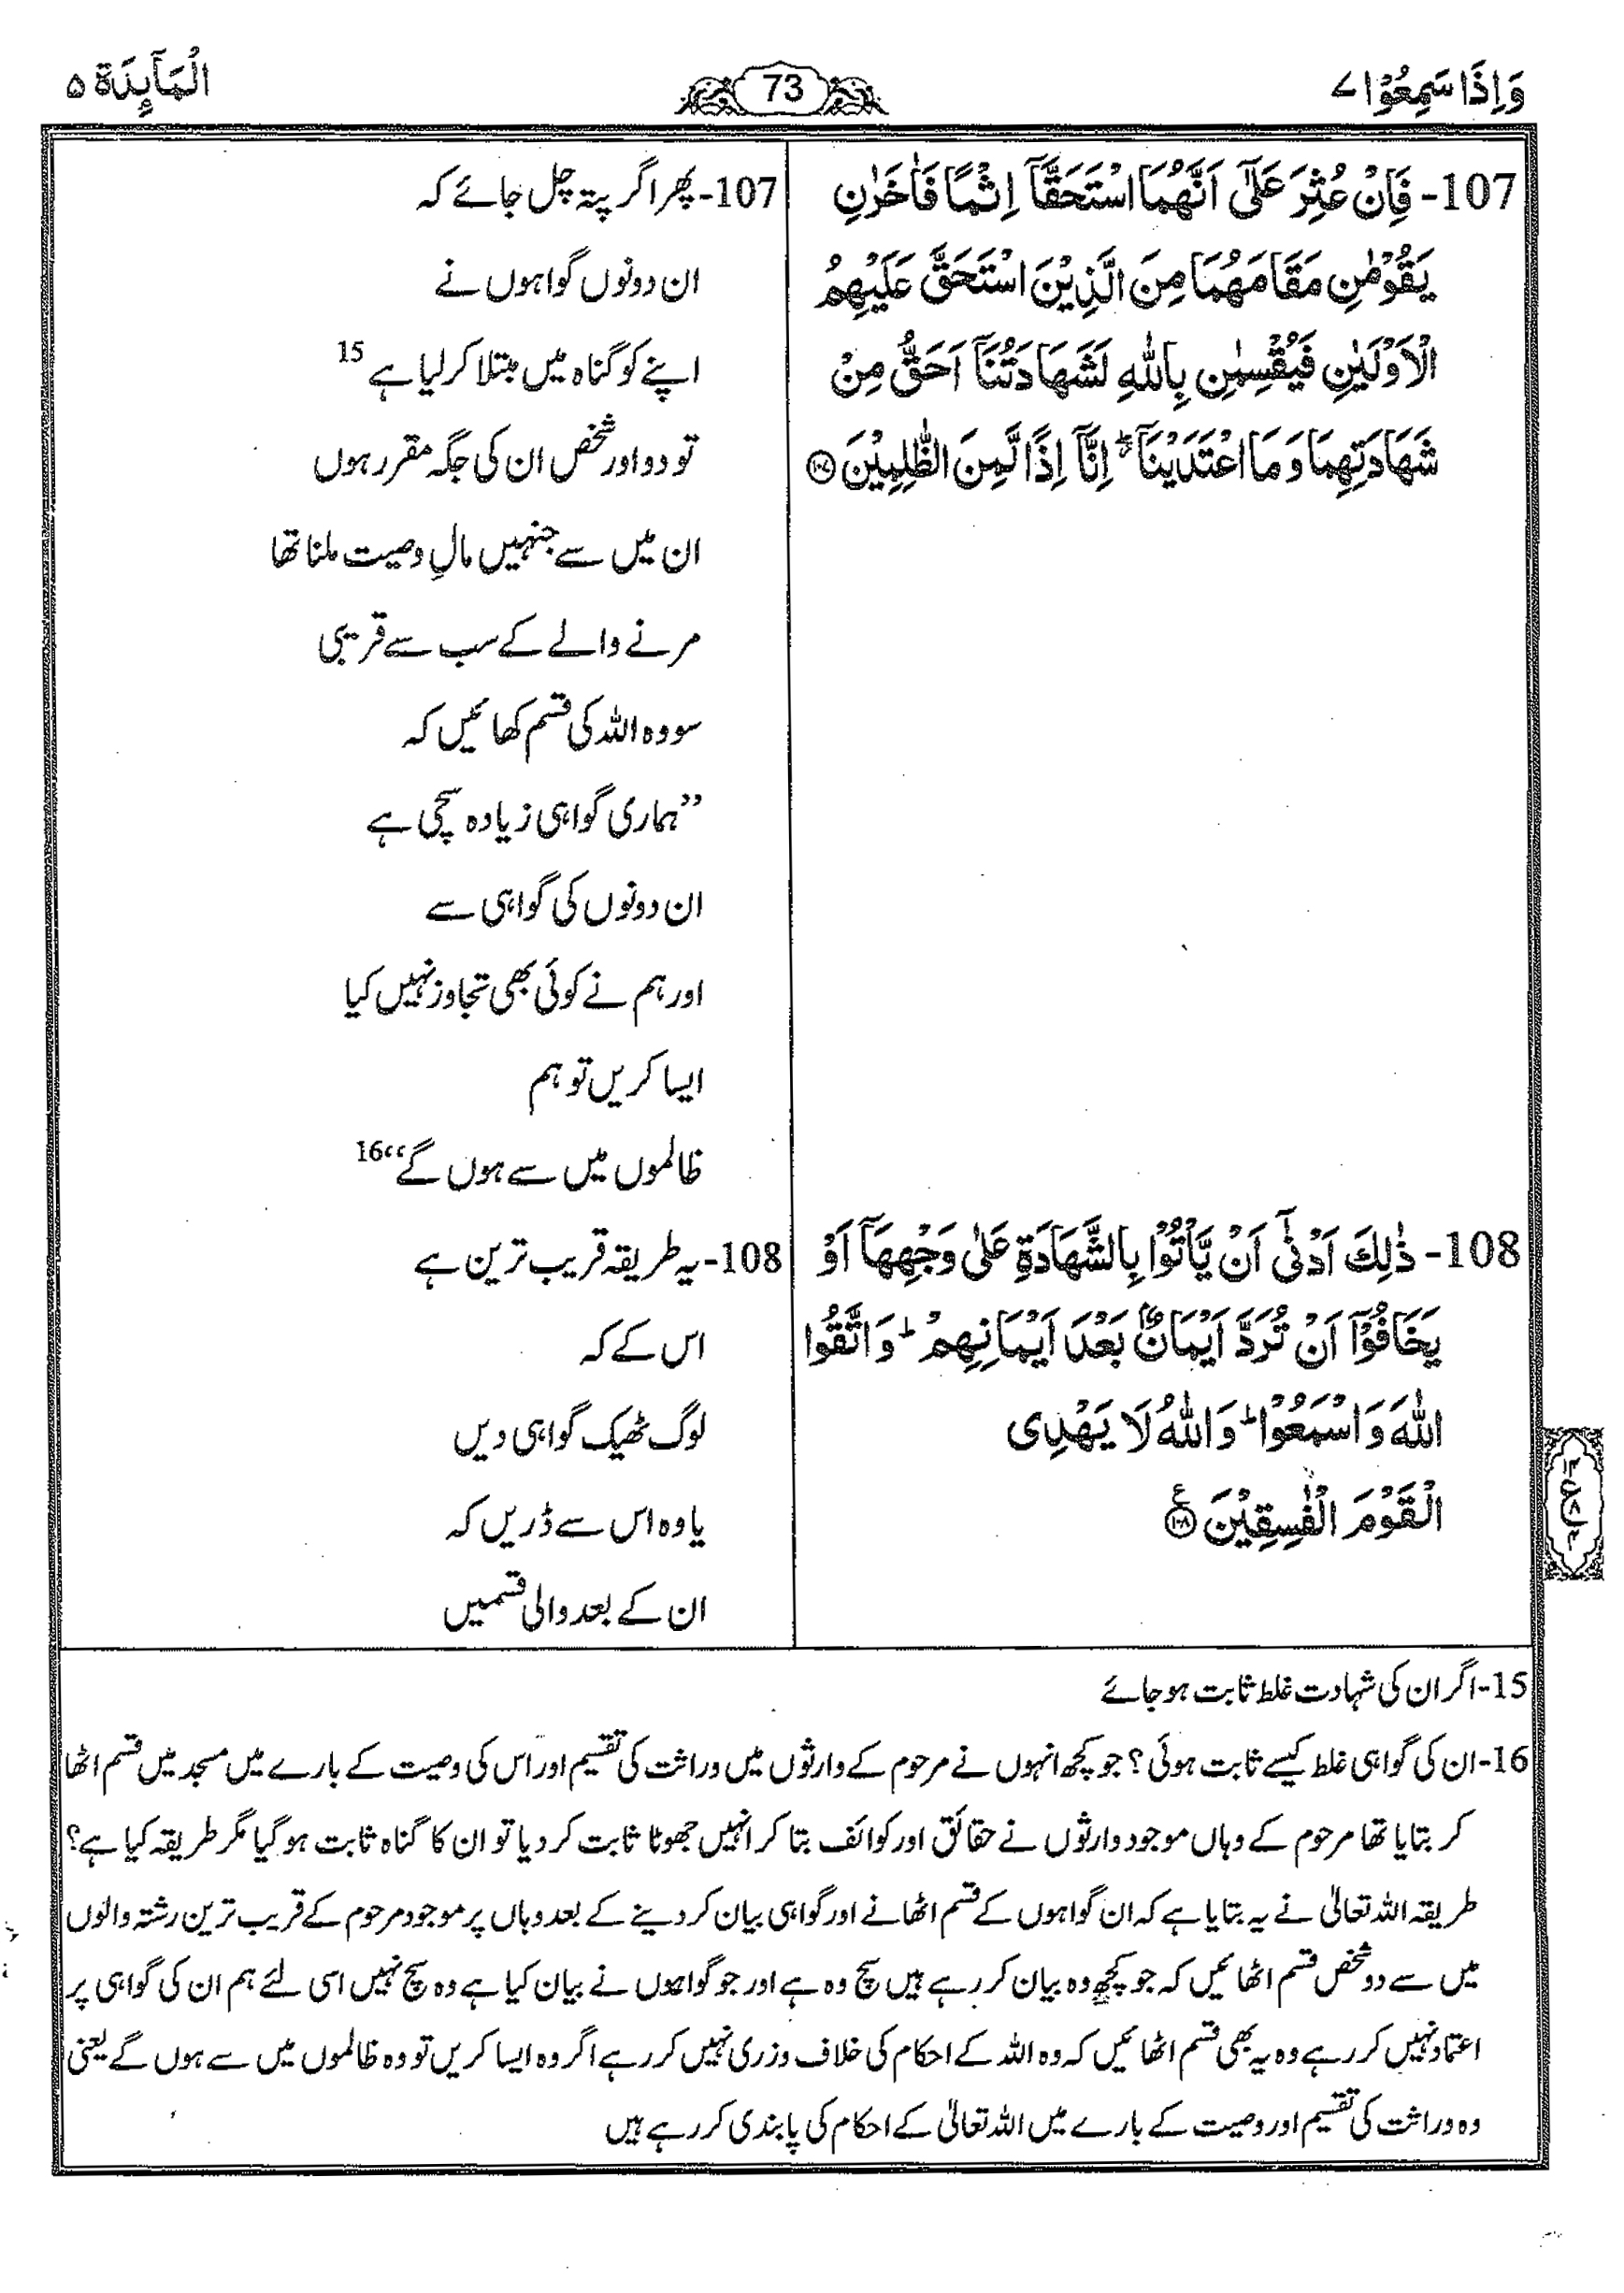 وَاِذَا سَمِعُوْا ۷
73
الْمَآىِٕدَة ۵
107- فَاِنْ عُثِرَ عَلٰۤى اَنَّهُمَا اسْتَحَقَّاۤ اِثْمًا فَاٰخَرٰنِ
يَقُوْمٰنِ مَقَامَهُمَا مِنَ الَّذِيْنَ اسْتَحَقَّ عَلَيْهِمُ
الْاَوْلَيٰنِ فَيُقْسِمٰنِ بِاللّٰهِ لَشَهَادَتُنَاۤ اَحَقُّ مِنْ
شَهَادَتِهِمَا وَمَا اعْتَدَيْنَاۤ ۖ اِنَّاۤ اِذًا لَّمِنَ الظّٰلِمِيْنَ ۱۰۷
107- پھر اگر پتہ چل جائے کہ
ان دونوں گواہوں نے
اپنے کو گناہ میں مبتلا کر لیا ہے 15
تو دو اور شخص ان کی جگہ مقرر ہوں
ان میں سے جنہیں مالِ وصیت ملنا تھا
مرنے والے کے سب سے قریبی
سو وہ اللہ کی قسم کھائیں کہ
”ہماری گواہی زیادہ سچی ہے
ان دونوں کی گواہی سے
اور ہم نے کوئی بھی تجاوز نہیں کیا
ایسا کریں تو ہم
ظالموں میں سے ہوں گے“ 16
108- ذٰلِكَ اَدْنٰۤى اَنْ يَّاْتُوْا بِالشَّهَادَةِ عَلٰى وَجْهِهَاۤ اَوْ
يَخَافُوْۤا اَنْ تُرَدَّ اَيْمَانٌۢ بَعْدَ اَيْمَانِهِمْ ؕ وَاتَّقُوا
اللّٰهَ وَاسْمَعُوْا ؕ وَاللّٰهُ لَا يَهْدِى
الْقَوْمَ الْفٰسِقِيْنَ ۱۰۸ ع
108- یہ طریقہ قریب ترین ہے
اس کے کہ
لوگ ٹھیک گواہی دیں
یا وہ اس سے ڈریں کہ
ان کے بعد والی قسمیں
15- اگر ان کی شہادت غلط ثابت ہو جائے
16- ان کی گواہی غلط کیسے ثابت ہوئی؟ جو کچھ انہوں نے مرحوم کے وارثوں میں وراثت کی تقسیم اور اس کی وصیت کے بارے میں مسجد میں قسم اٹھا
کر بتایا تھا مرحوم کے وہاں موجود وارثوں نے حقائق اور کوائف بتا کر انہیں جھوٹا ثابت کر دیا تو ان کا گناہ ثابت ہو گیا مگر طریقہ کیا ہے؟
طریقہ اللہ تعالیٰ نے یہ بتایا ہے کہ ان گواہوں کے قسم اٹھانے اور گواہی بیان کر دینے کے بعد وہاں پر موجود مرحوم کے قریب ترین رشتہ والوں
میں سے دو شخص قسم اٹھائیں کہ جو کچھ وہ بیان کر رہے ہیں سچ وہ ہے اور جو گواہوں نے بیان کیا ہے وہ سچ نہیں اسی لئے ہم ان کی گواہی پر
اعتماد نہیں کر رہے وہ یہ بھی قسم اٹھائیں کہ وہ اللہ کے احکام کی خلاف ورزی نہیں کر رہے اگر وہ ایسا کریں تو وہ ظالموں میں سے ہوں گے یعنی
وہ وراثت کی تقسیم اور وصیت کے بارے میں اللہ تعالیٰ کے احکام کی پابندی کر رہے ہیں